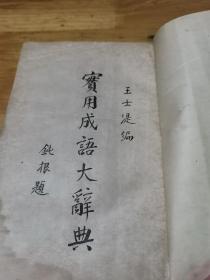 王士湜編
實用成語大辭典
鈍根題